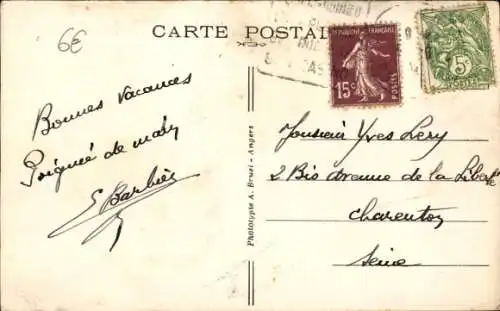 6€
CARTE POSTALE
REPUBLIQUE FRANÇAISE
15c
POSTES
5c
Bonnes vacances
Poignée de main
E Barbier
Phototypie A. Bruel - Angers
Monsieur Yves Lery
2 Bis avenue de la Liberté
Charenton
Seine